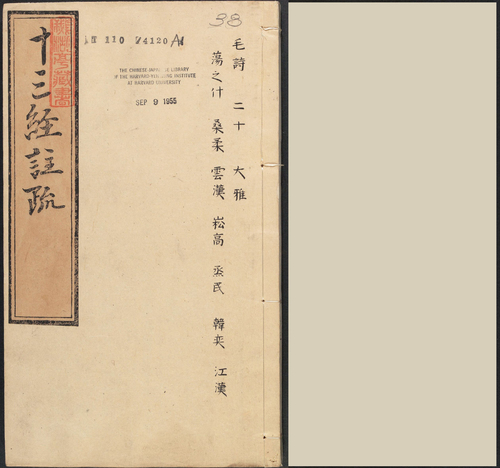 38
T 110 74120 A1
THE CHINESE-JAPANESE LIBRARY
OF THE HARVARD-YENCHING INSTITUTE
AT HARVARD UNIVERSITY
SEP 9 1955
毛詩 二十 大雅
蕩之什 桑柔 雲漢 崧高 烝民 韓奕 江漢
十三經註疏